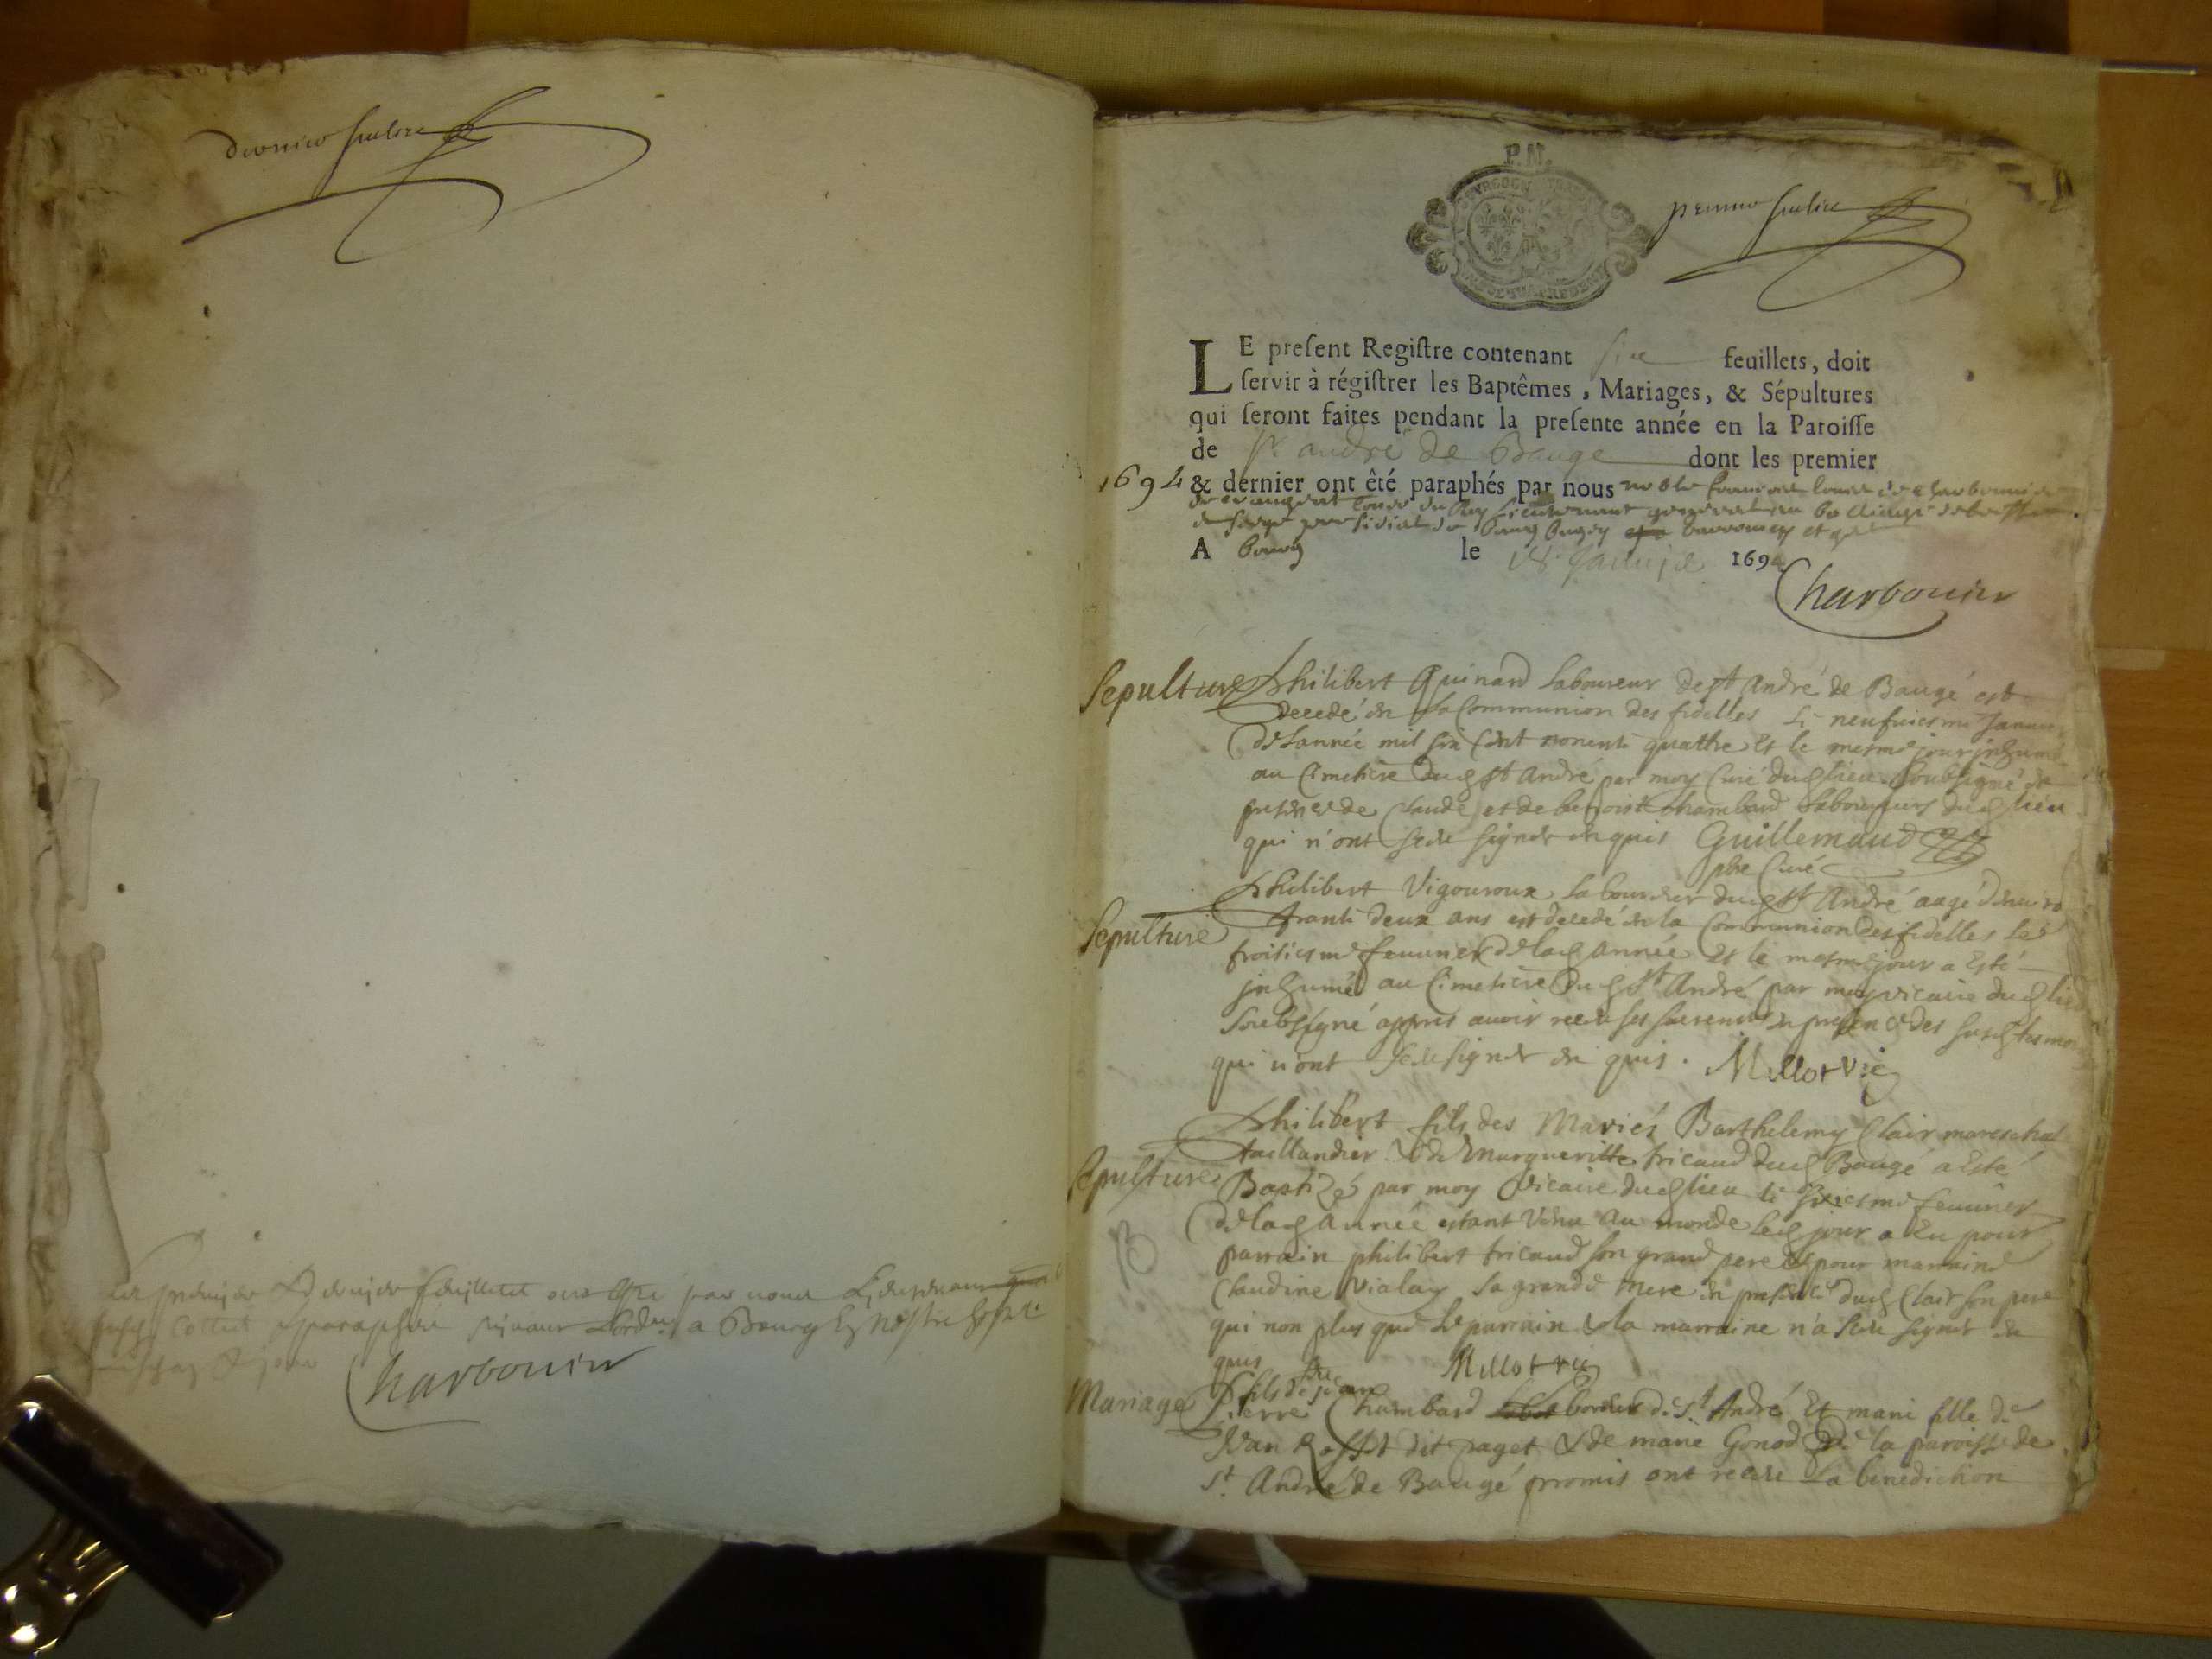 P. N.
LE preſent Regiſtre contenant six feuillets, doit
ſervir à régiſtrer les Baptêmes, Mariages, & Sépultures
qui ſeront faites pendant la preſente année en la Paroiſſe
de St. andré de Bauge dont les premier
1694 & dernier ont êté paraphés par nous
A bourg le 1694
Charbonier
Sepulture Philibert Guinard laboureur de St André de Baugé est
decedé en la Communion des fidelles le neufuiesme Januier
de lannée mil six cent nonente quattre Et le mesme jour inhumé
au Cimetiere dud St André par moy Curé dud lieu soubsigné en
presence de Claude et de benoist chambard laboureurs dud lieu
qui n'ont sceu signer enquis Guillemaud
pbre Curé
Philibert Vigouroux laboureur dud St André aagé denuiron
trante deux ans est decedé en la Communion des fidelles le
Sepulture
troisiesme feurier de lad année Et le mesme jour a Esté
inhumé au Cimetiere dud St André par moy vicaire dud lieu
soubsigné appres auoir receu ses sacrements en presence des susd tesmoins
qui n'ont sceu signer en quis. Millot vic
Philibert fils des Mariés Barthelemy Clair mareschal
taillandier & de Margueritte tricaud dud Baugé a Esté
Sepulture Baptizé par moy vicaire dud lieu le feurier
de lad Année estant venu au monde led jour a Eu pour
B
parrain philibert tricaud son grand pere & pour marraine
Claudine Vialay sa grande mere en presence dud Clair son pere
qui non plus que le parrain & la marraine n'a sceu signer en
quis Millot vic
fils de feu jean
Mariage Pierre Chambard de St André Et marie fille de
Jean dit paget & de marie Gonod de la paroisse de
St André de Baugé promis ont receu La benediction
Charbonier